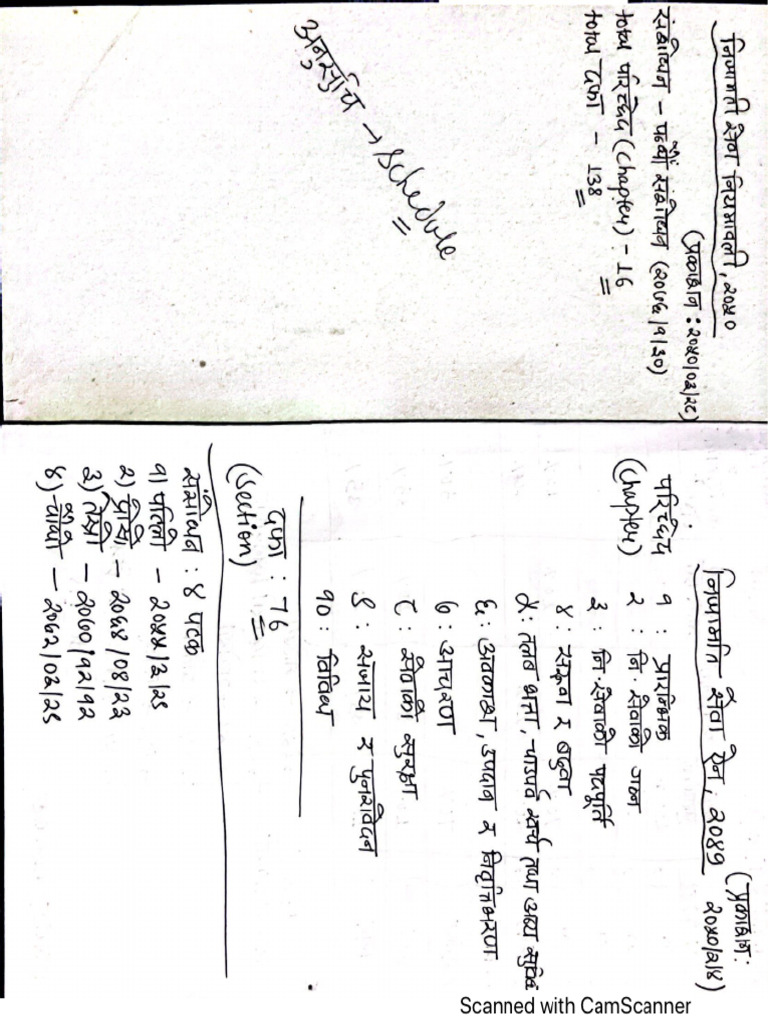 निजामती सेवा नियमावली, २०५०
(प्रकाशन : २०५०/०३/२८)
संशोधन - पन्ध्रौं संशोधन (२०७६/१/३०)
total परिच्छेद (Chapter) - 16
total दफा - 138
अनुसूचि → Schedule
निजामति सेवा ऐन, २०४९
(प्रकाशन : २०५०/२/४)
परिच्छेद
(Chapter)
१ : प्रारम्भिक
२ : नि. सेवाको गठन
३ : नि. सेवाको पदपूर्ति
४ : सरुवा र बढुवा
५ : तलब भत्ता, चाडपर्व खर्च तथा अन्य सुविधा
६ : अवकाश, उपदान र निवृत्तिभरण
७ : आचरण
८ : सेवाको सुरक्षा
९ : सजाय र पुनरावेदन
१० : विविध
दफा : 76
(Section)
संशोधन : ४ पटक
१) पहिलो - २०५५/३/२८
२) दोश्रो - २०६४/०४/२३
३) तेश्रो - २०७०/१२/१२
४) चौथो - २०७२/०२/२८
Scanned with CamScanner